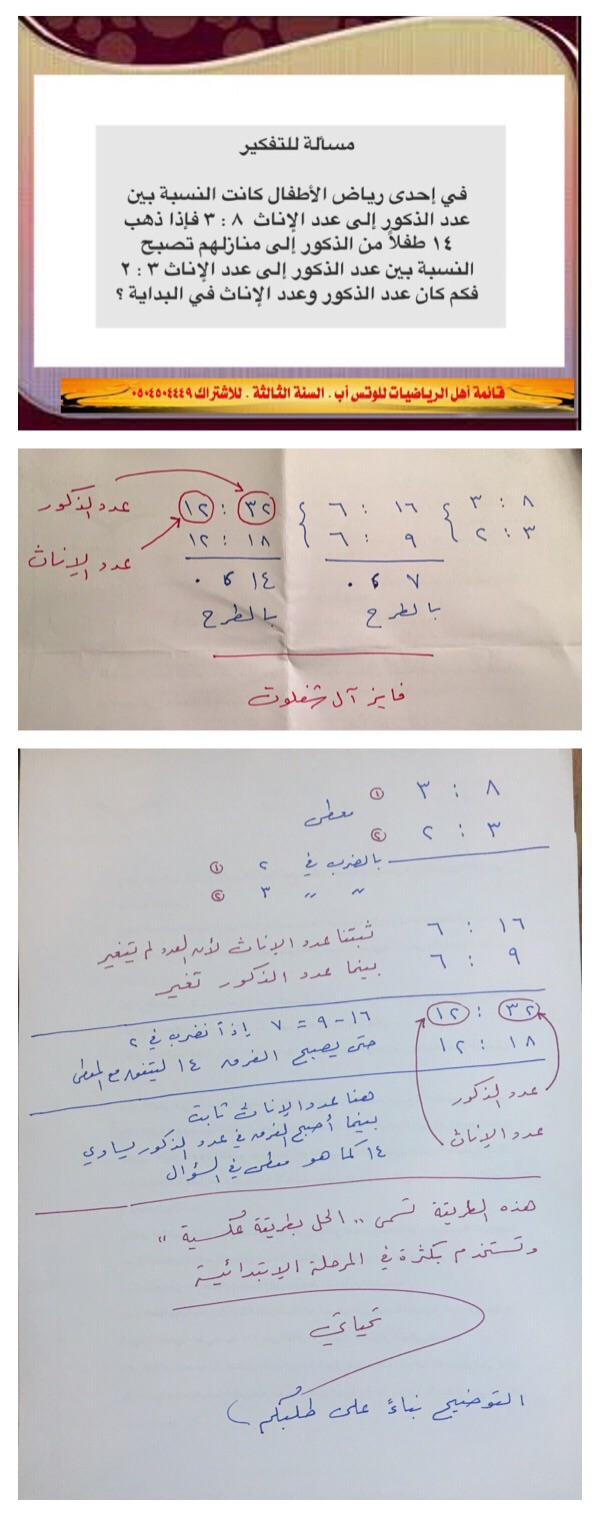 مسألة للتفكير
في إحدى رياض الأطفال كانت النسبة بين
عدد الذكور إلى عدد الإناث ٨ : ٣ فإذا ذهب
١٤ طفلاً من الذكور إلى منازلهم تصبح
النسبة بين عدد الذكور إلى عدد الإناث ٣ : ٢
فكم كان عدد الذكور وعدد الإناث في البداية ؟
قائمة أهل الرياضيات للوتس أب . السنة الثالثة . للاشتراك ٠٥٠٤٥٠٤٤٤٩
٨ : ٣ } ١٦ : ٦ } ٣٢ : ١٢ عدد الذكور
٣ : ٢ } ٩ : ٦ } ١٨ : ١٢
عدد الإناث
٧ ، ٠ ١٤ ، ٠
بالطرح بالطرح
فايز آل شفلوت
٨ : ٣ ①
معطى
٣ : ٢ ②
بالضرب في ٢ ①
〃 〃 ٣ ②
١٦ : ٦ ثبتنا عدد الإناث لأن العدد لم يتغير
٩ : ٦ بينما عدد الذكور تغير
٣٢ : ١٢ ١٦ - ٩ = ٧ إذاً نضرب في ٢
١٨ : ١٢ حتى يصبح الفرق ١٤ ليتفق مع المعطى
عدد الذكور هنا عدد الإناث ثابت
عدد الإناث بينما أصبح الفرق في عدد الذكور يساوي
١٤ كما هو معطى في السؤال
هذه الطريقة تسمى ,, الحل بطريقة عكسية ,,
وتستخدم بكثرة في المرحلة الابتدائية
تحياتي
التوضيح بناءً على طلبكم )